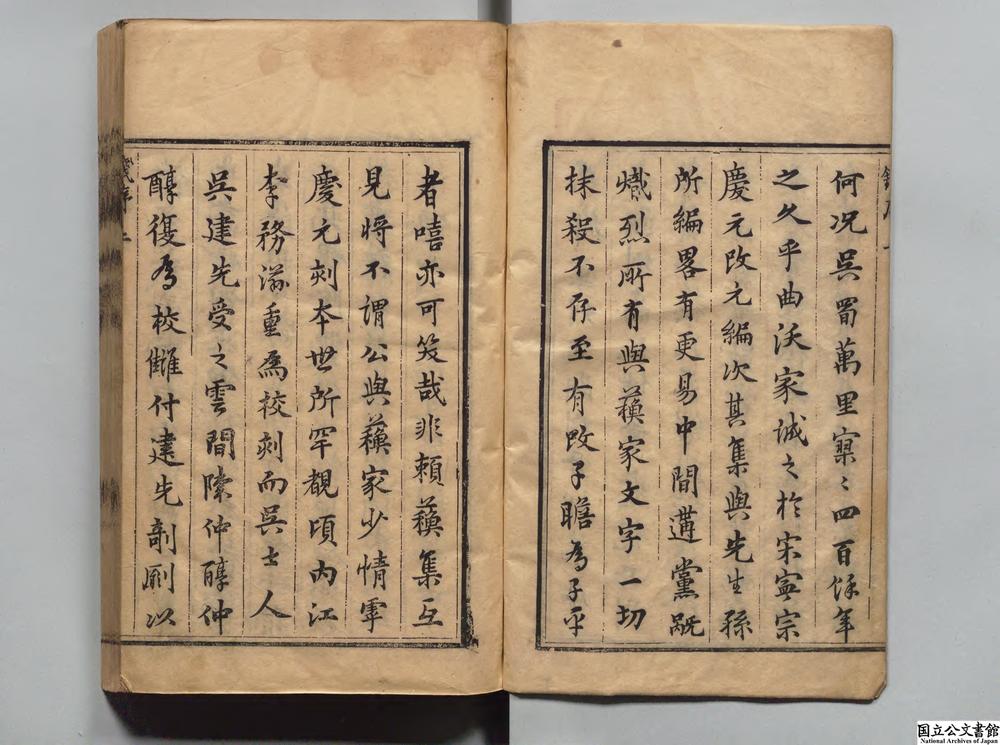 何况吳蜀萬里寥〻四百餘年
之久乎曲沃家誠之於宋寧宗
慶元改元編次其集與先生孫
所編畧有更易中間遘黨旤
熾烈所有與蘓家文字一切
抹殺不存至有改子瞻為子平
者嘻亦可笑哉非頼蘓集互
見將不謂公與蘓家少情事
慶元刻本世所罕覯頃內江
李務滋重為校刻而吳士人
吳建先受之雲間陳仲醇仲
醇復為校讎付建先剞劂以
國立公文書館
National Archives of Japan